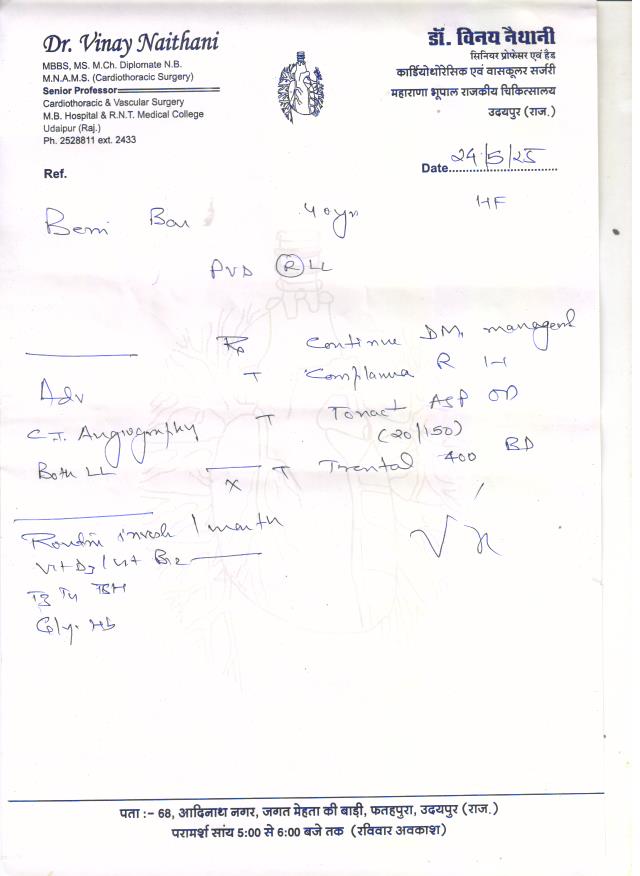 Dr. Vinay Naithani
MBBS, MS. M.Ch. Diplomate N.B.
M.N.A.M.S. (Cardiothoracic Surgery)
Senior Professor
Cardiothoracic & Vascular Surgery
M.B. Hospital & R.N.T. Medical College
Udaipur (Raj.)
Ph. 2528811 ext. 2433
डॉ. विनय नैथानी
सिनियर प्रोफेसर एवं हैड
कार्डियोथोरेसिक एवं वासकूलर सर्जरी
महाराणा भूपाल राजकीय चिकित्सालय
उदयपुर (राज.)
Ref.
Date 24/5/25
40yr
PVD R LL
Rx Continue DM
T R
T Tonact ASP OD
(20/150)
T Trental 400 BD
Adv
C.T. Angiography
Both LL
X
1 month
Vit D3 / Vit B12
T3 T4 TSH
Gly. Hb
पता :- 68, आदिनाथ नगर, जगत मेहता की बाड़ी, फतहपुरा, उदयपुर (राज.)
परामर्श सांय 5:00 से 6:00 बजे तक (रविवार अवकाश)